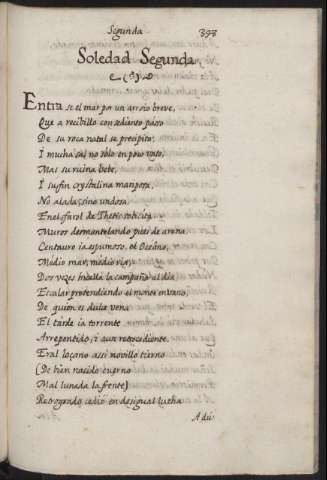 Segunda 393
Soledad Segunda
Entra se el mar por un arroio breve,
Que a recibillo con sediento passo
De su roca natal se precipita:
I mucha sal no solo en poco vaso,
Mas su ruina bebe,
I su fin crystalina mariposa,
No alada, sino undosa,
En el farol de Thetis solicita
Muros desmantelando pues de arena
Centauro ia espumoso, el Oceáno,
Medio mar, medio ria,
Dos vezes huella la campaña al dia,
Escalar pretendiendo el monte en vano,
De quien es dulce vena
El tarde ia torrente
Arrepentido, i aun retrocediente.
Eral loçano assi novillo tierno
(De bien nacido cuerno
Mal lunada la frente)
Retrogrado cedio en desigual lucha
A du